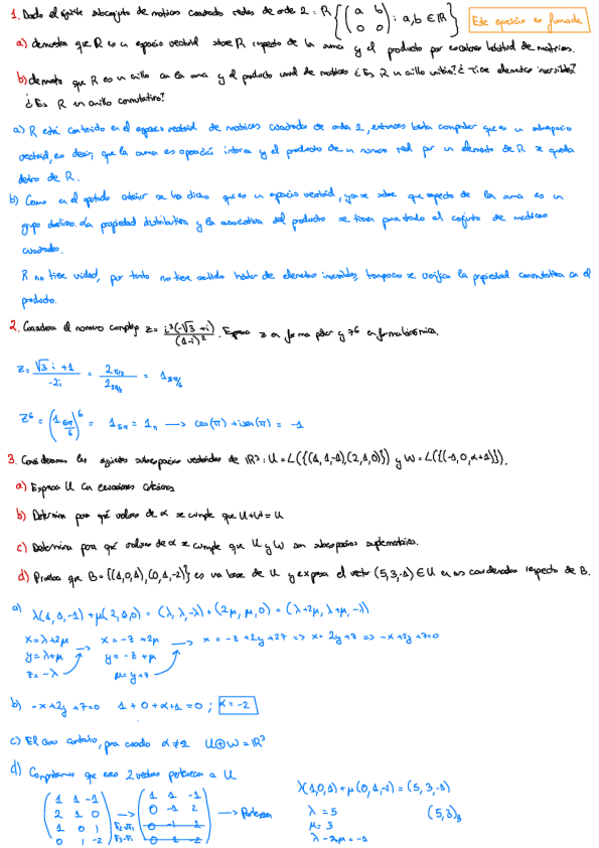 1. Dado el siguiente subconjunto de matrices cuadradas reales de orden 2: R { ( a b ; 0 0 ) : a,b ∈ ℝ }
Este ejercicio es fumada
a) demuestra que R es un espacio vectorial sobre ℝ respecto de la suma y el producto por escalares habitual de matrices.
b) demuestra que R es un anillo con la suma y el producto usual de matrices ¿Es R un anillo unitario? ¿Tiene elementos inversibles?
¿Es R un anillo conmutativo?
a) R está contenido en el espacio vectorial de matrices cuadradas de orden 2, entonces basta comprobar que es un subespacio
vectorial, es decir, que la suma es operación interna y el producto de un número real por un elemento de R se queda
dentro de R.
b) Como en el apartado anterior se ha dicho que es un espacio vectorial, ya se sabe que respecto de la suma es un
grupo abeliano. La propiedad distributiva y la asociativa del producto se tienen para todo el conjunto de matrices
cuadradas.
R no tiene unidad, por tanto no tiene sentido hablar de elementos inversibles, tampoco se verifica la propiedad conmutativa en el
producto.
2. Considera el número complejo z = i³(-√3+i) / (1-i)². Expresa z en forma polar y z⁶ en forma binómica.
z = √3 i + 1 / -2i = 2π/3 / 2 3π/2 = 1 5π/6
z⁶ = (1 5π/6)⁶ = 1 5π = 1 π → cos(π) + i sen(π) = -1
3. Consideramos los siguientes subespacios vectoriales de ℝ³: U = L({(1,1,-1),(2,1,0)}) y W = L({(-1,0,α+1)}).
a) Expresa U con ecuaciones cartesianas
b) Determina para qué valores de α se cumple que U+W = U
c) Determina para qué valores de α se cumple que U y W son subespacios suplementarios.
d) Prueba que B = {(1,0,1),(0,1,-2)} es una base de U y expresa el vector (5,3,-1) ∈ U en sus coordenadas respecto de B.
a) λ(1,1,-1) + μ(2,1,0) = (λ,λ,-λ) + (2μ,μ,0) = (λ+2μ, λ+μ, -λ)
x = λ+2μ x = -z+2μ → x = -z+2y+2z => x = 2y+z => -x+2y+z=0
y = λ+μ → y = -z+μ
z = -λ μ = y+z
b) -x+2y+z=0 1+0+α+1=0 ; α = -2
c) El caso contrario, para cuando α ≠ 2 U⊕W = ℝ³
d) Comprobamos que esos 2 vectores pertenecen a U
( 1 1 -1 ; 2 1 0 ; 1 0 1 ; 0 1 -2 ) → ( 1 1 -1 ; 0 -1 2 ; 0 -1 2 ; 0 1 -2 ) → Pertenecen
λ(1,0,1) + μ(0,1,-2) = (5,3,-1)
λ = 5 (5,3)B
μ = 3
λ-2μ = -1